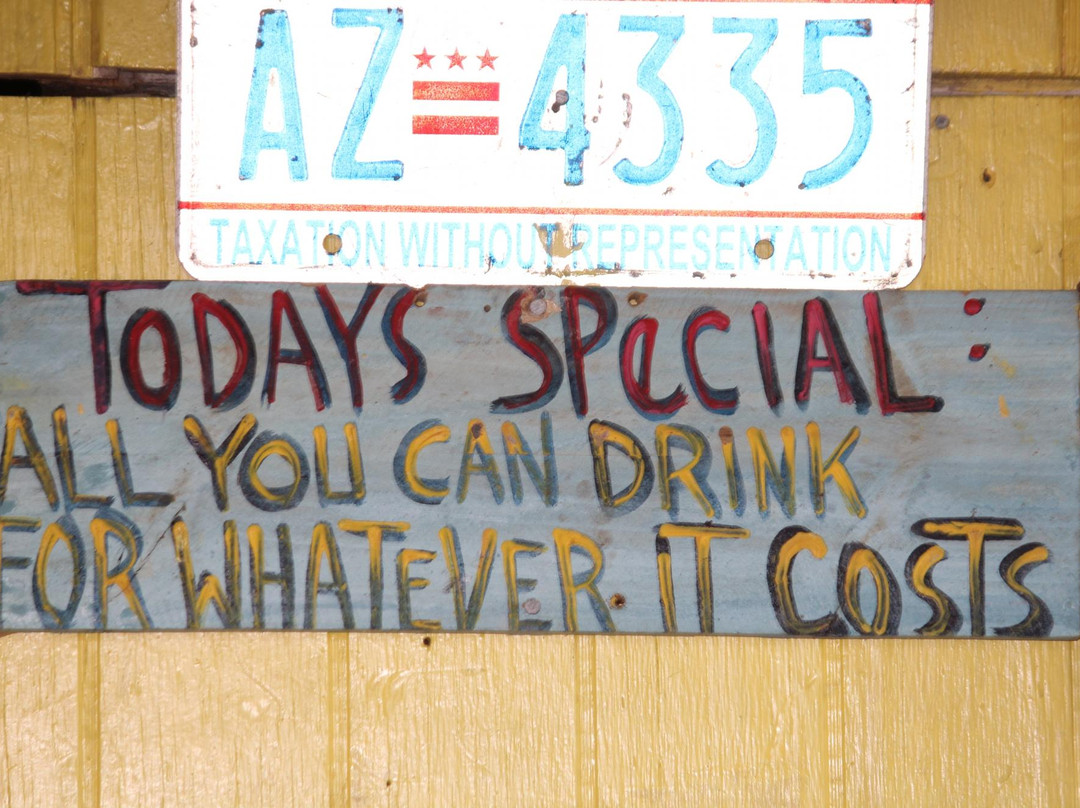 AZ 4335
TAXATION WITHOUT REPRESENTATION
TODAYS SPeCIAL:
ALL YOU CAN DRINK
FOR WHATEVER IT COSTS